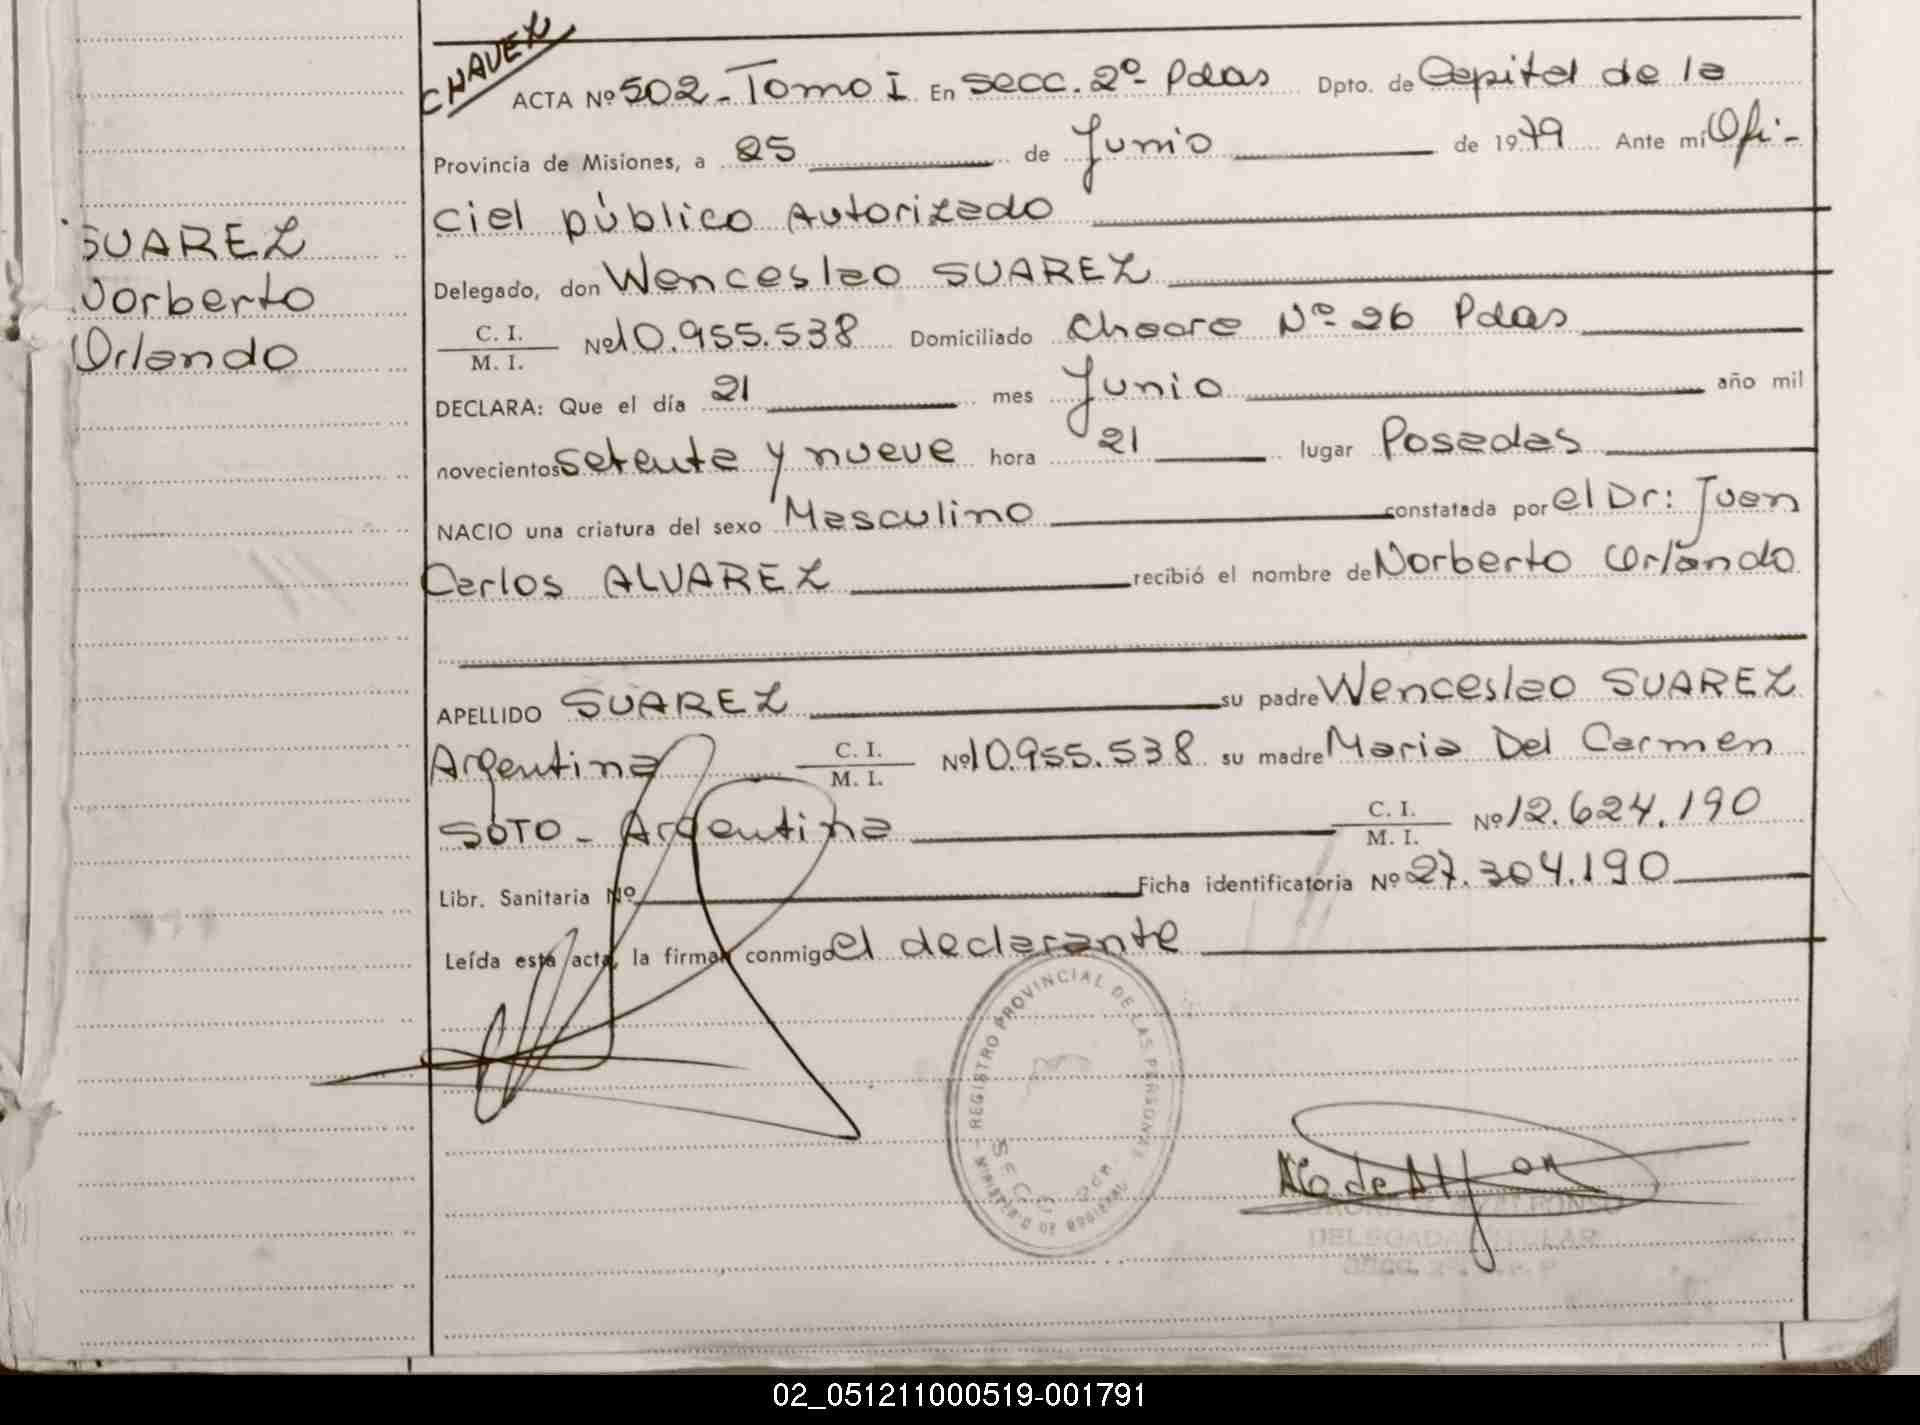 CHAVEZ
ACTA Nº 502 - Tomo I En Secc. 2º - Pdas Dpto. de Capital de la
Provincia de Misiones, a 25 de Junio de 1979 Ante mí Ofi-
cial público Autorizado
SUAREZ
Norberto
Orlando
Delegado, don Wenceslao SUAREZ
C. I.
M. I.
Nº 10.955.538 Domiciliado Chacra Nº 26 Pdas
DECLARA: Que el día 21 mes Junio año mil
novecientos setenta y nueve hora 21 lugar Posadas
NACIO una criatura del sexo Masculino constatada por el Dr: Juan
Carlos ALVAREZ recibió el nombre de Norberto Orlando
APELLIDO SUAREZ su padre Wenceslao SUAREZ
Argentina C. I. / M. I. Nº 10.955.538 su madre Maria Del Carmen
SOTO - Argentina C. I. / M. I. Nº 12.624.190
Libr. Sanitaria Nº Ficha identificatoria Nº 27.304.190
Leída esta acta, la firman conmigo el declarante
REGISTRO PROVINCIAL DE LAS PERSONAS
MINISTERIO DE GOBIERNO
SECC 2da
de Alfon
ALFONSO
DELEGADA TITULAR
02_051211000519-001791